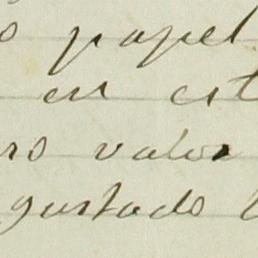 o papel
en est
ro valor
gustado l